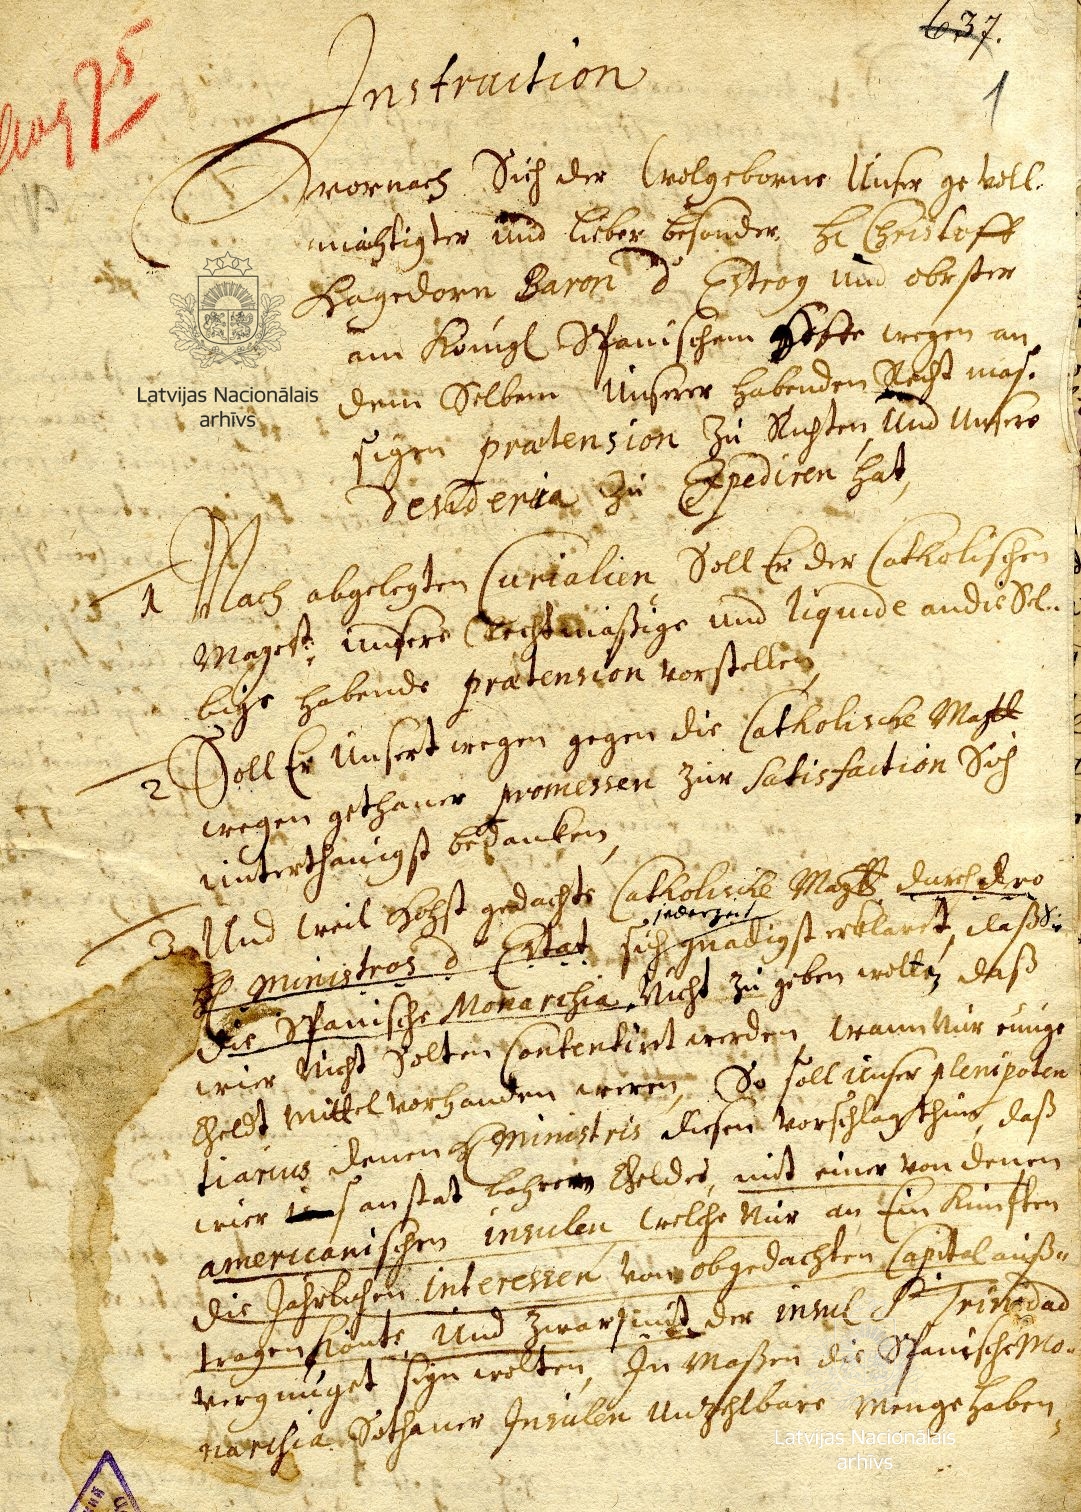 637.
1
Instruction
Wornach Sich der Wolgeborne Unser gevoll
mächtigter und lieber besonder H Christoff
Hagedorn Baron d' Estroy und obrister
am Königl Spanischem Hoffe wegen an
dem Selbem Unserer habenden Recht mäs
sigen prætension zu Richten, Und Unsere
Desideria zu Expediren hat,
1 Nach abgelegten Curialien Soll Er der Catholischen
Mayest: unsere Rechtmäßige und liquide an die Sel-
bige habende prætension vorstellen,
2 Soll Er Unsert wegen gegen die Catholische Maytt
wegen gethaner promessen zur Satisfaction Sich
unterthänigst bedanken,
3 Und weil Höhst gedachte Catholische Maytt durch dero
jederzeit
H Ministros d' Estat sich gnädigst erklaret, daß
die Spanische Monarchia Nicht zu geben wolte, daß
wier Nicht Solten Contentiret werden, wann Nur einige
Geldt Mittel vorhanden weren, So soll Unser plenipoten
tiarius denen H Ministris diesen Vorschlag thun, daß
wier anstat bahren Geldes, mit einer von denen
americanischen insulen, welche Nur an Ein Künften
die Jährlichen interessen von obgedachten Capital auß-
tragen könte, Und zwar mit der insul St Trinidad
vergnüget sein wolten, In Maßen die Spanische Mo-
narchia Sothaner Insulen Unzehlbare Menge haben,
Latvijas Nacionālais
arhīvs
Latvijas Nacionālais
arhīvs